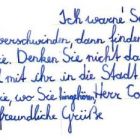 Ich warne S
verschwinden dann finden
ie. Denken Sie nicht da
d mit ihr in die Stadt
ie, wo Sie hingehören, Herr Co
freundliche Grüße